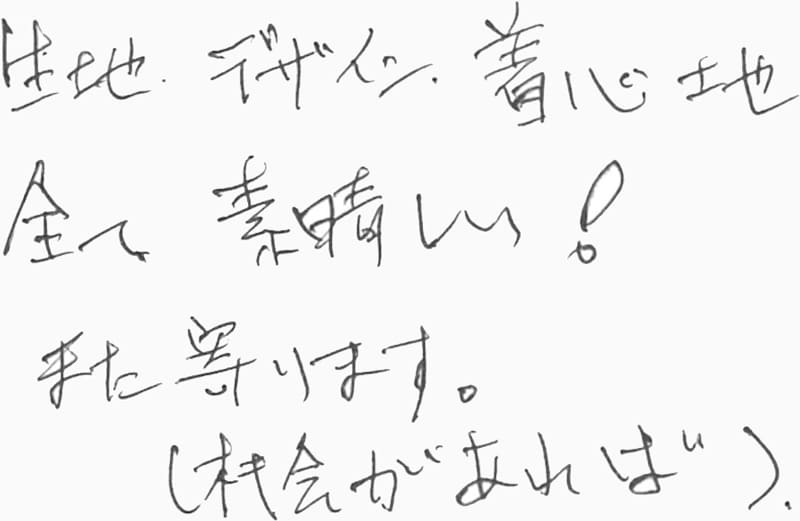 生地．デザイン．着心地
全て 素晴しい！
また寄ります。
（機会があれば）．